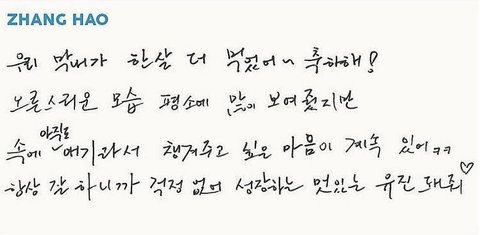 ZHANG HAO
우리 막내가 한살 더 먹었어~ 축하해!
어른스러운 모습 평소에 많이 보여줬지만
속에 아직도 애기라서 챙겨주고 싶은 마음이 계속 있어ㅋㅋ
항상 잘 하니까 걱정 없이 성장하는 멋있는 유진 돼줘♡